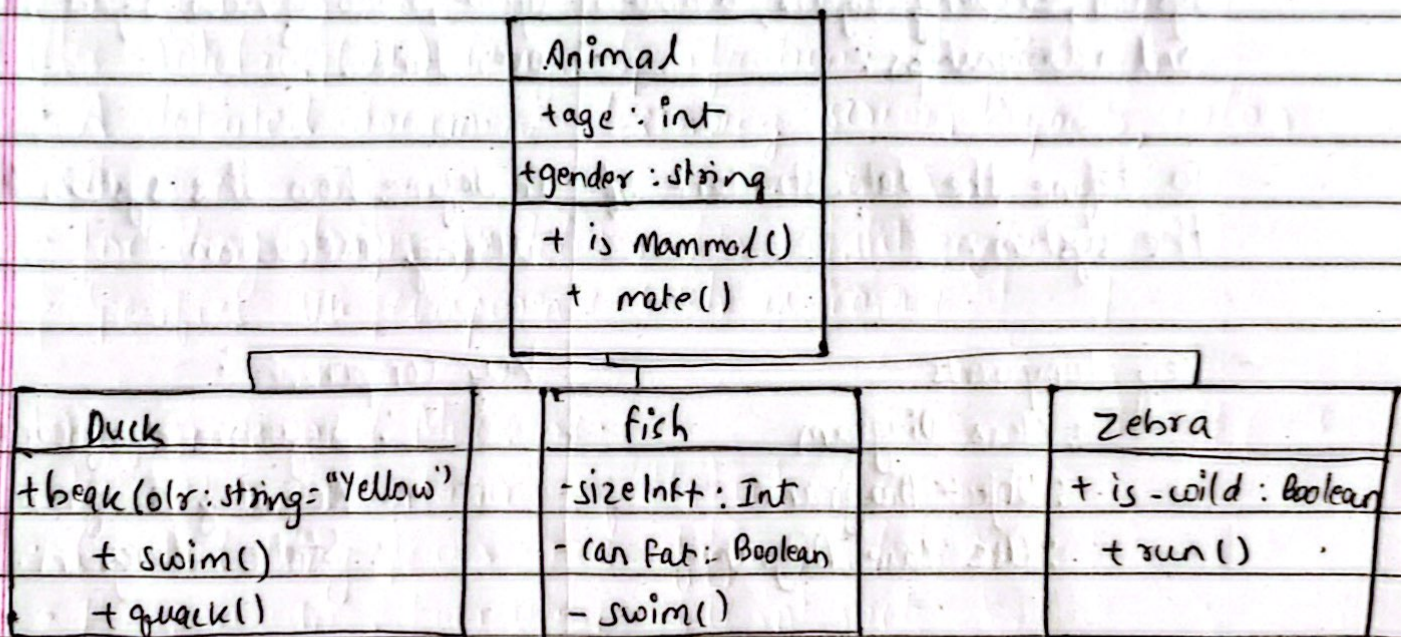 Animal
+age : int
+gender : string
+ is Mammal()
+ mate()
Duck
+beak Colr : string = "Yellow"
+ swim()
+ quack()
fish
-size Inft : Int
- can Eat : Boolean
- swim()
Zebra
+ is-wild : Boolean
+ run()